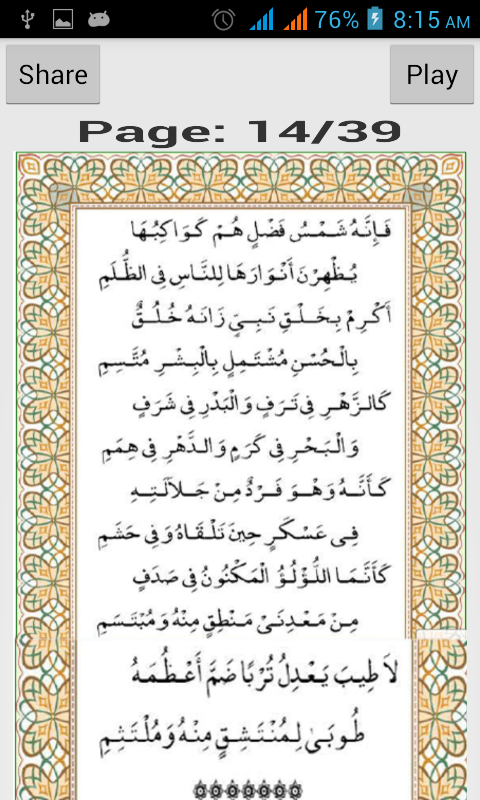 76% 8:15 AM
Share Play
Page: 14/39
فَإِنَّهُ شَمْسُ فَضْلٍ هُمْ كَوَاكِبُهَا
يُظْهِرْنَ أَنْوَارَهَا لِلنَّاسِ فِى الظُّلَمِ
أَكْرِمْ بِخَلْقِ نَبِيٍّ زَانَهُ خُلُقٌ
بِالْحُسْنِ مُشْتَمِلٍ بِالْبِشْرِ مُتَّسِمِ
كَالزَّهْرِ فِى تَرَفٍ وَالْبَدْرِ فِى شَرَفٍ
وَالْبَحْرِ فِى كَرَمٍ وَالدَّهْرِ فِى هِمَمِ
كَأَنَّهُ وَهْوَ فَرْدٌ مِنْ جَلَالَتِهِ
فِى عَسْكَرٍ حِينَ تَلْقَاهُ وَفِى حَشَمِ
كَأَنَّمَا اللُّؤْلُؤُ الْمَكْنُونُ فِى صَدَفٍ
مِنْ مَعْدِنَىْ مَنْطِقٍ مِنْهُ وَمُبْتَسَمِ
لَا طِيبَ يَعْدِلُ تُرْبًا ضَمَّ أَعْظُمَهُ
طُوبَىٰ لِمُنْتَشِقٍ مِنْهُ وَمُلْتَثِمِ